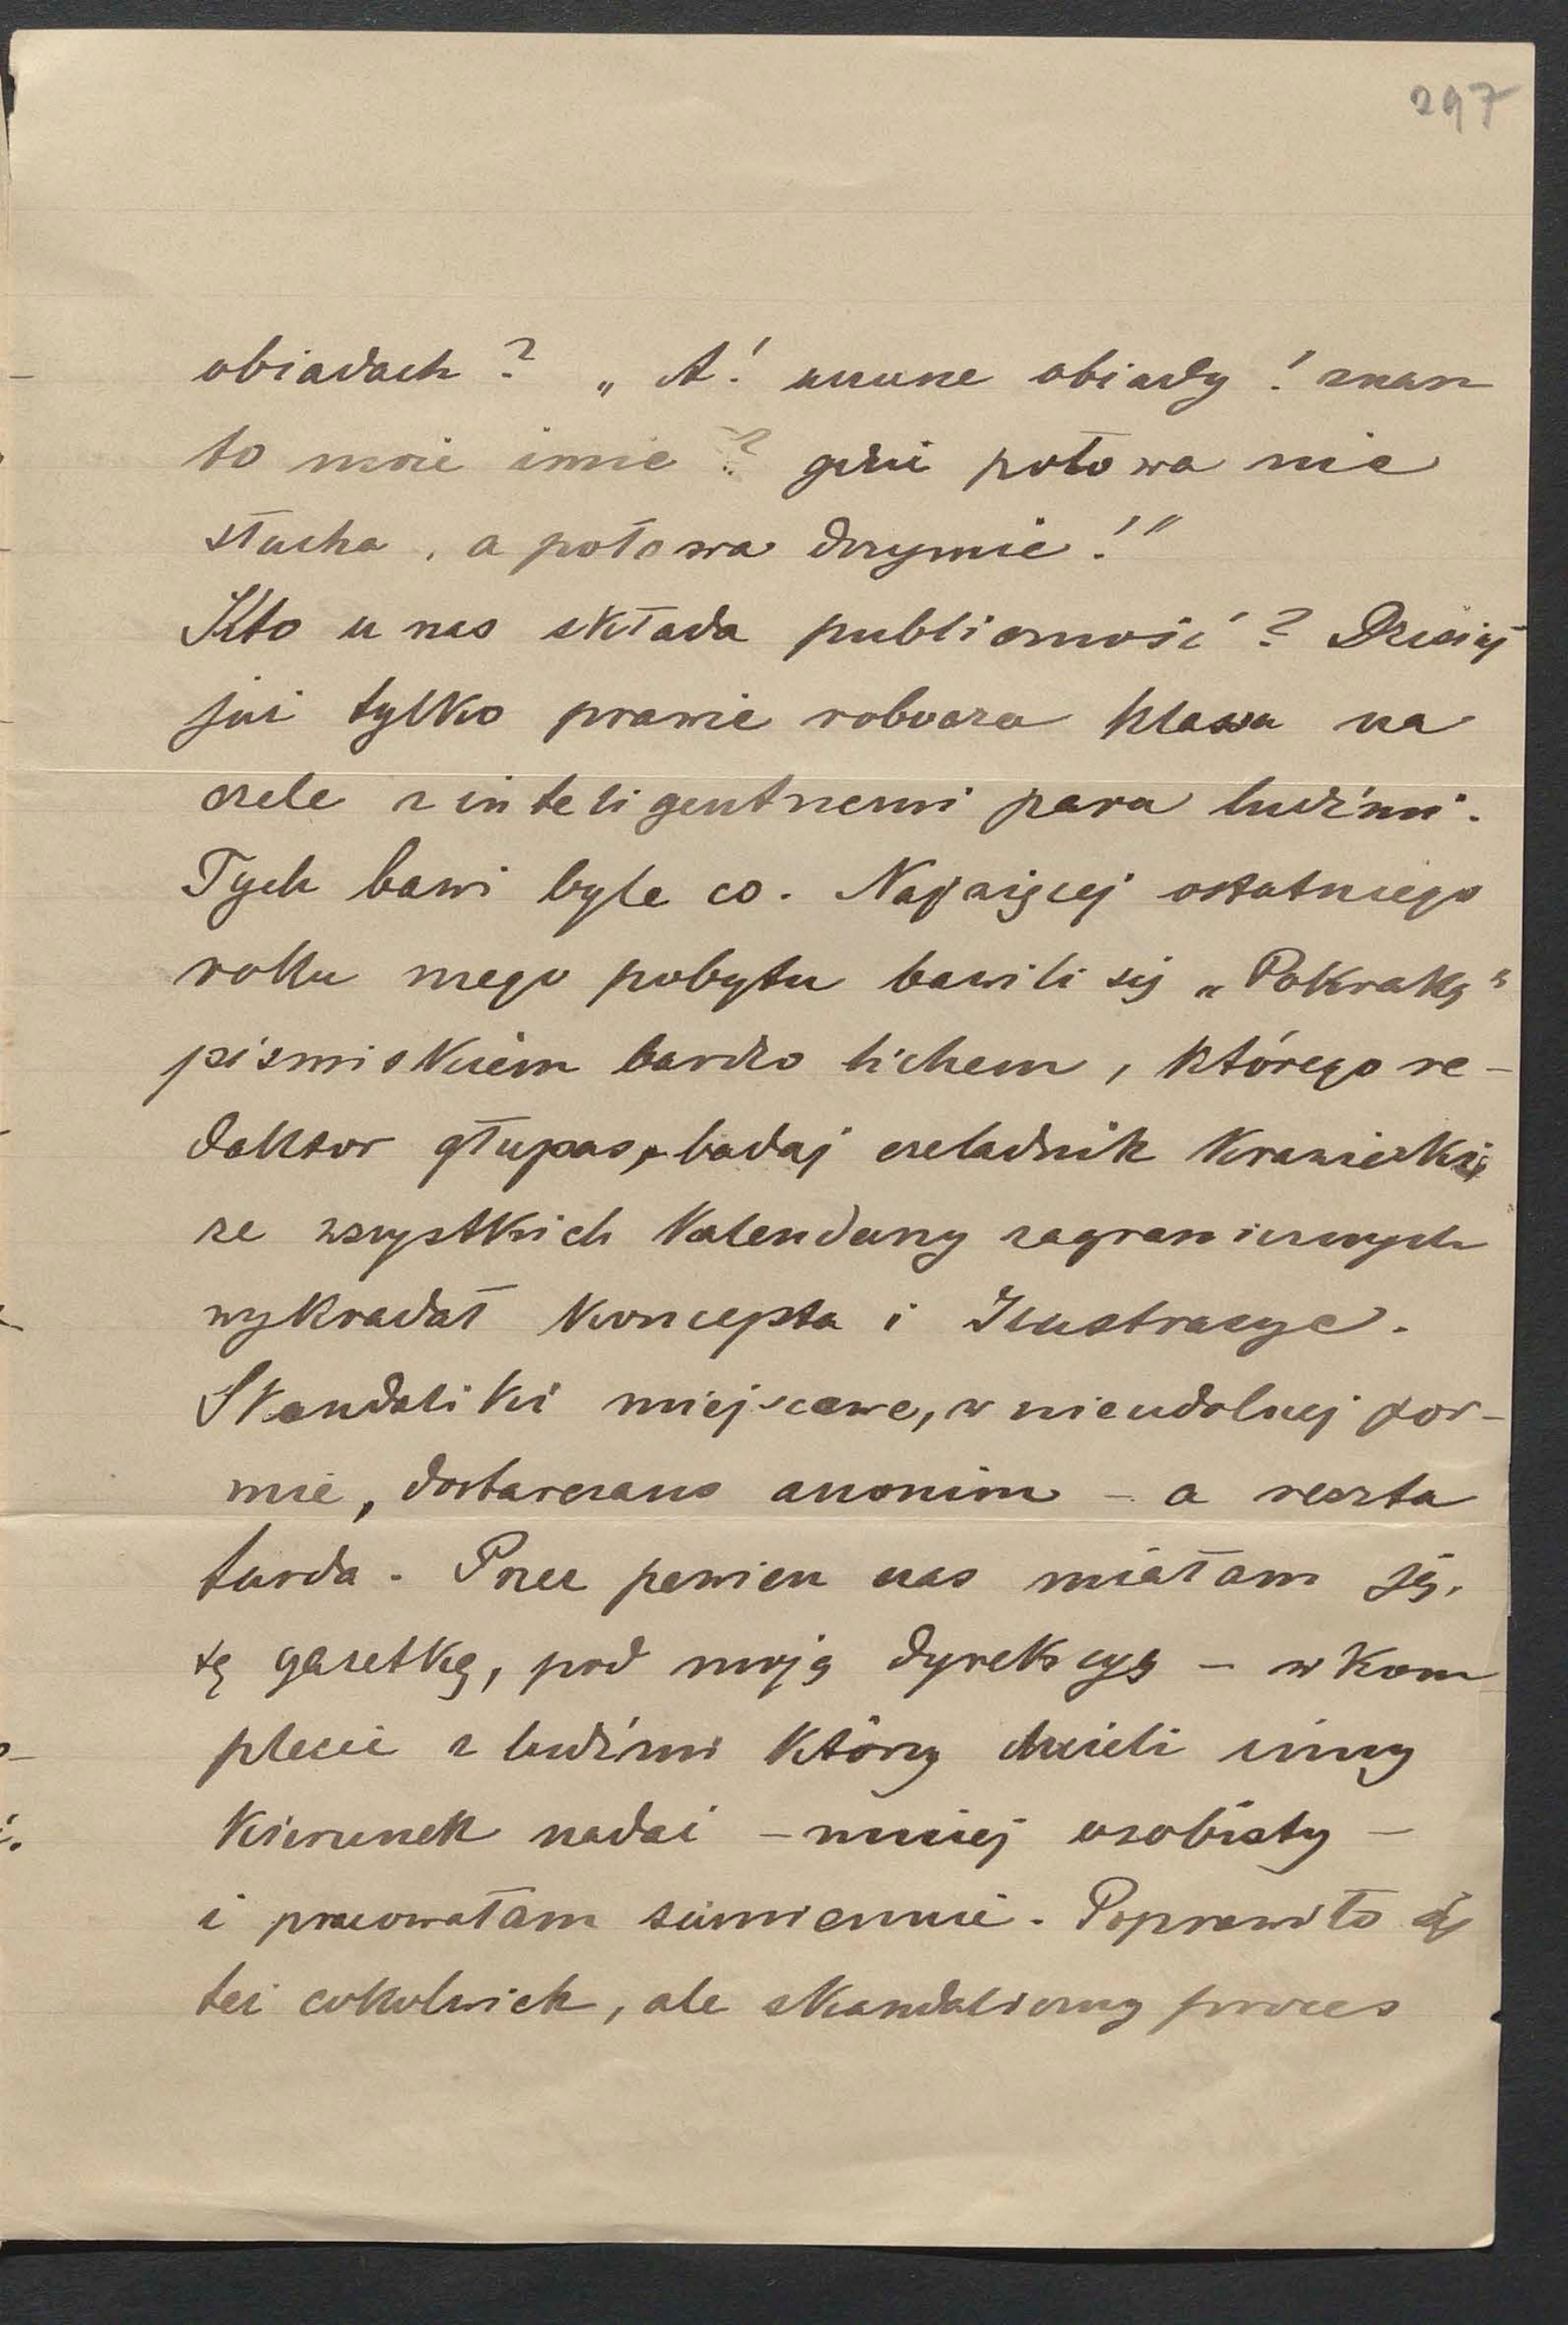 297
obiadach? „A! uczone obiady! znasz
to moje imie? gdzie połowa nie
słucha, a połowa drzymie!"
Kto u nas składa publiczność? Dzisiaj
już tylko prawie robocza klassa na
czele z inteligentnemi parą ludźmi.
Tych bawi byle co. Najwięcej ostatniego
roku mego pobytu bawili się „Pokraką"
pismiskiem bardzo lichem, którego re-
daktor głupas, badaj czeladnik krawiecki
ze wszystkich kalendarzy zagranicznych
wykradał koncepta i Ilustracye.
Skandaliki miejscowe, w nieudolnej for-
mie, dostarczano anonim – a reszta
furda. Przez pewien czas miałam ją,
tę gazetkę, pod moją dyrekcyą – w kom
plecie z ludźmi którzy chcieli inny
kierunek nadać – mniej osobisty –
i pracowałam sumiennie. Poprawiło się
też cokolwiek, ale skandaliczny proces